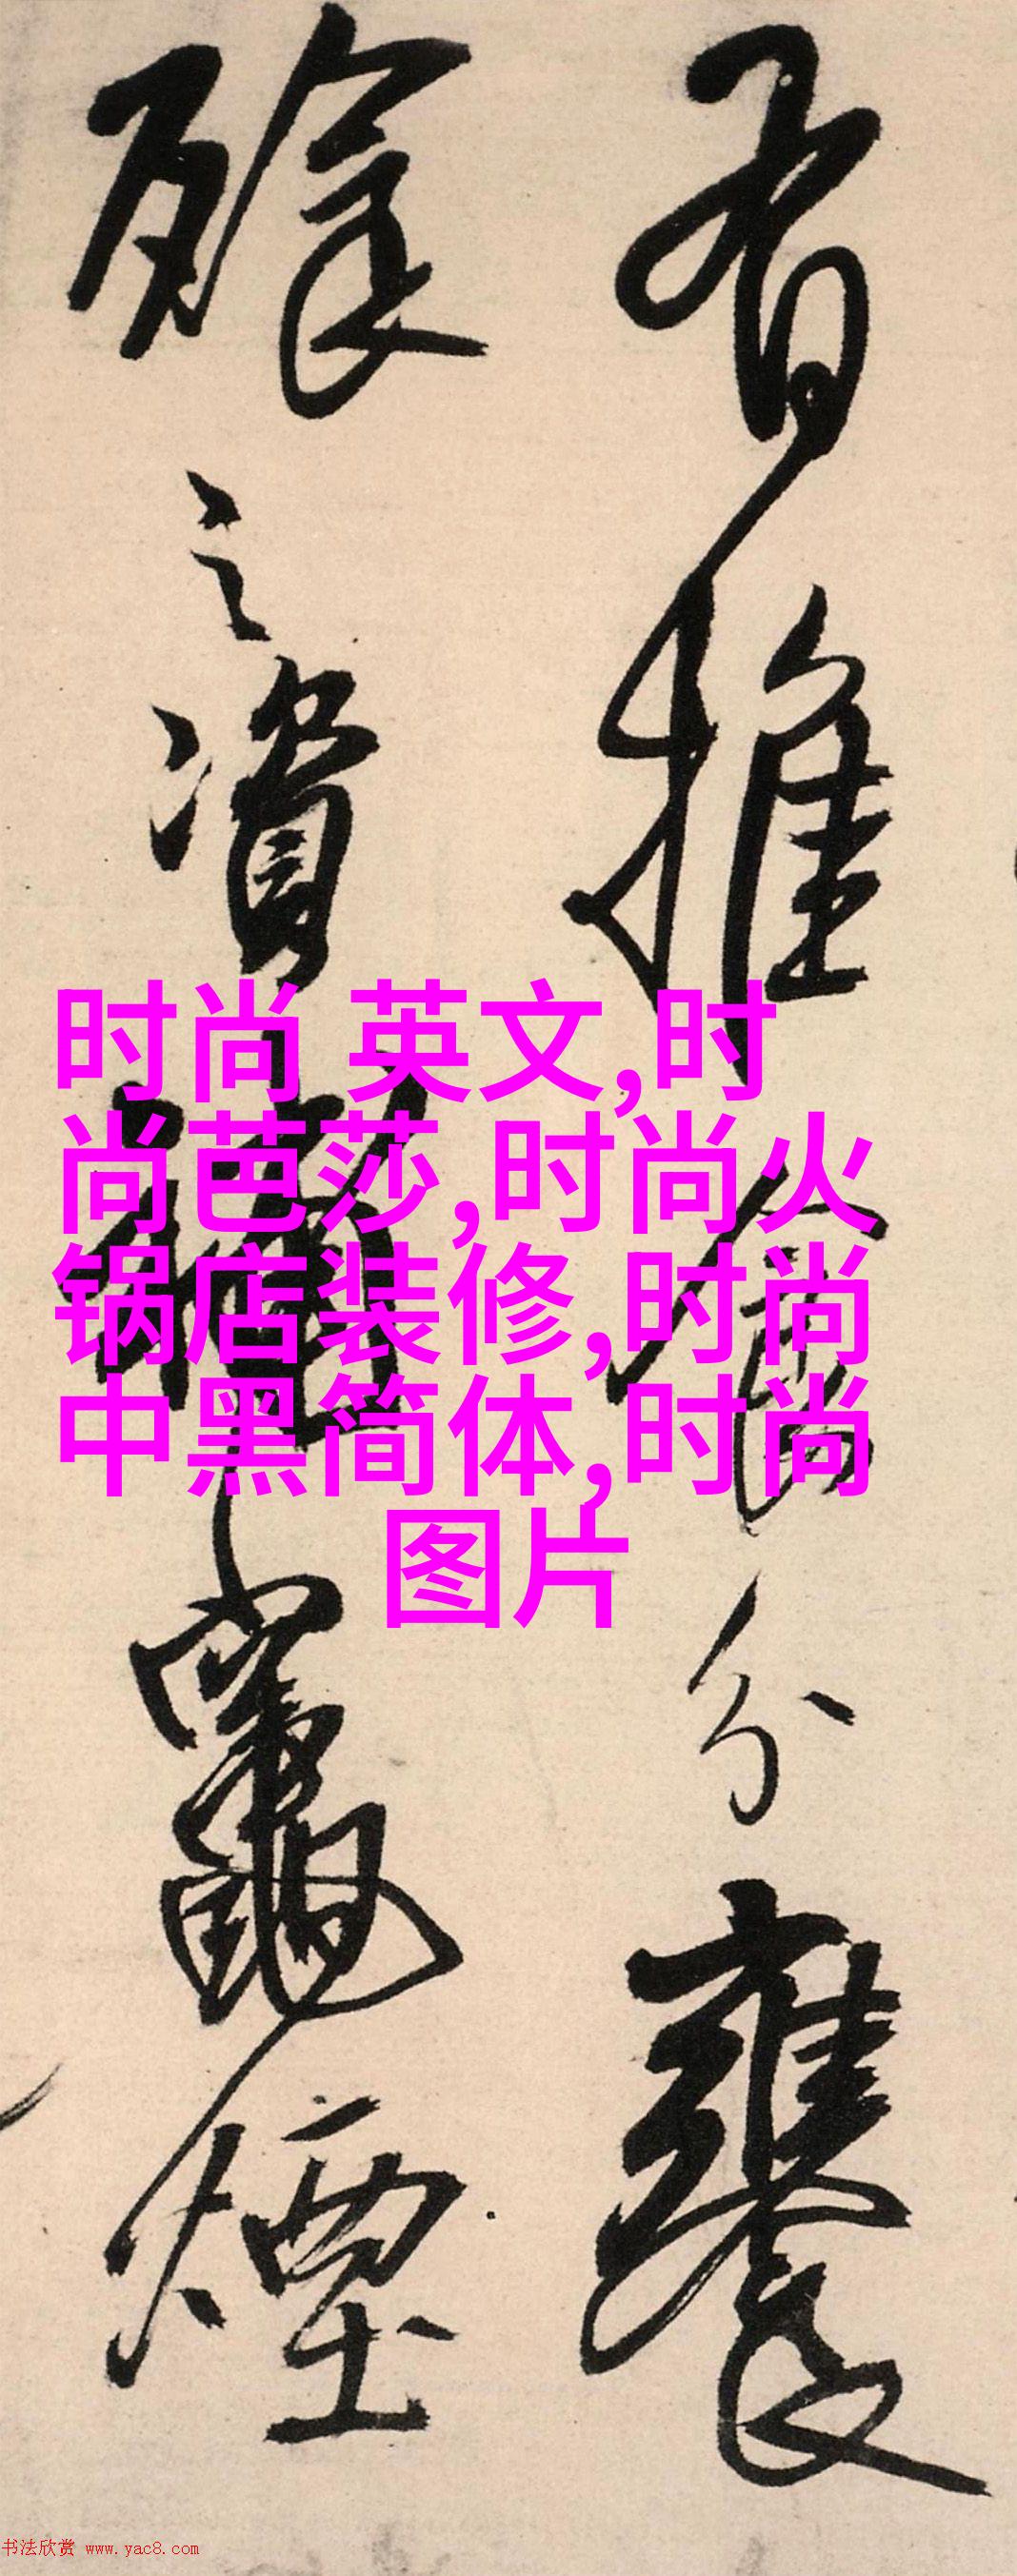 有推分饔
餘之資竈煙
时尚 英文,时
尚芭莎,时尚火
锅店装修,时尚
中黑简体,时尚
图片
书法欣赏 www.yac8.com